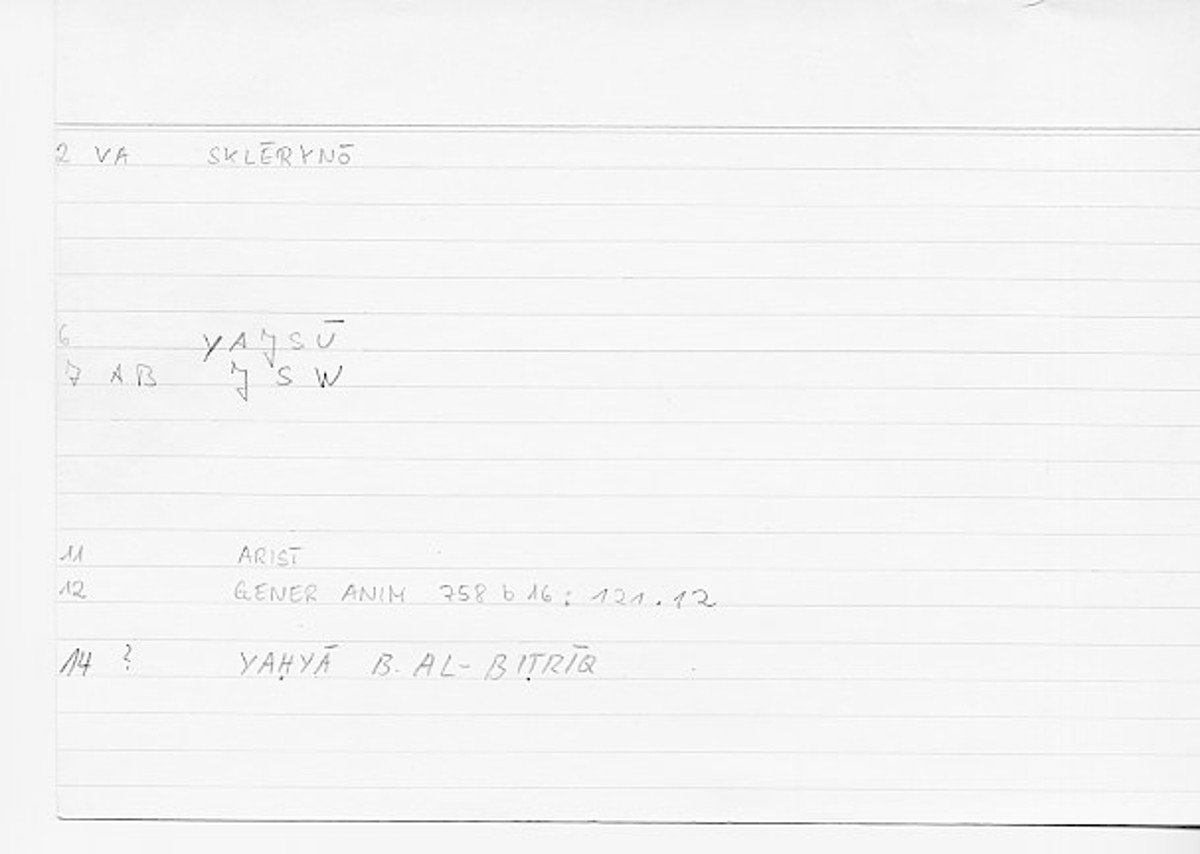 2 VA SKLĒRYNŌ
6 YAJSŪ
7 AB JSW
11 ARIST
12 GENER ANIM 758 b 16 : 121.12
14 ? YAḤYĀ B. AL-BIṬRĪQ